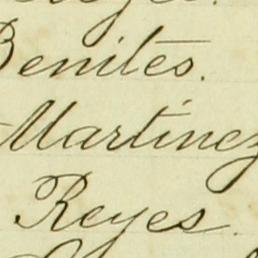 Benites.
Martinez
Reyes.